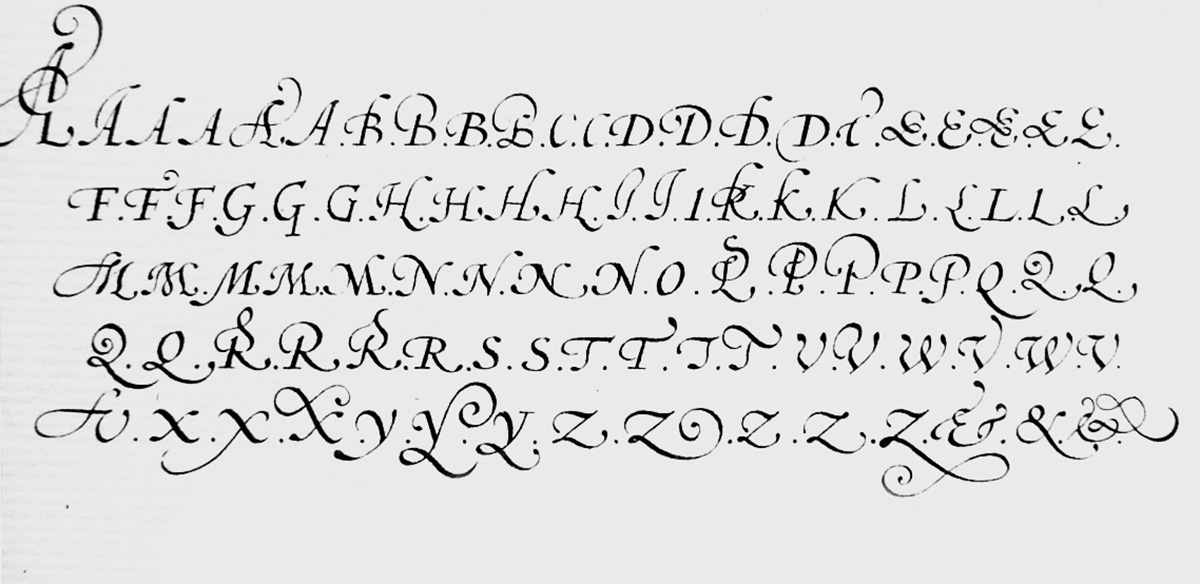 A A A A A A B B B B C C D D D D C E E E E E.
F.F.F.G.G.G.H.H.H.H.I.I.I.K.K.K.L.L.L.L.L
M.M.M.M.M.N.N.N.N.O.P.P.P.P.P.Q.Q.Q.
Q.Q.R.R.R.R.S.S.T.T.T.T.V.V.W.V.W.V.
V.X.X.X.Y.Y.Y.Z.Z.Z.Z.Z.&.&.&.